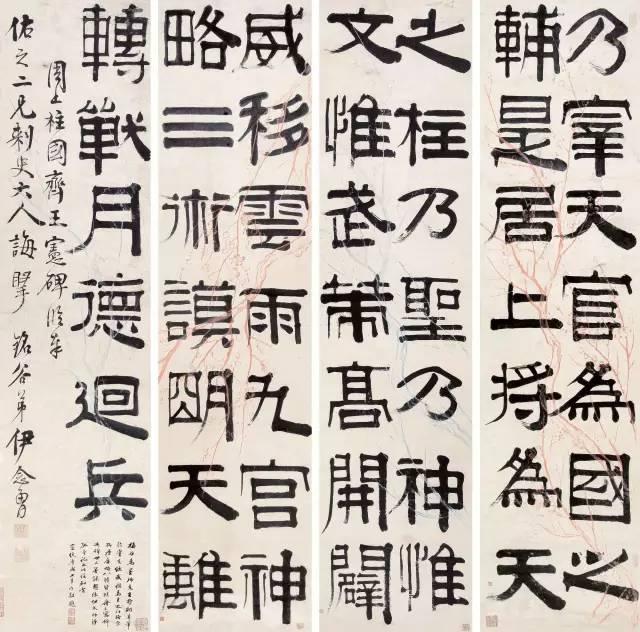 乃宰天官為國之
輔是居上將為天
之柱乃聖乃神惟
文惟武策高開闢
威移雲雨九宮神
略三術謨明天離
轉戰月德迴兵
周上柱國齊王憲碑臨奉
佑之二兄刺史大人誨 銘谷弟伊念曾